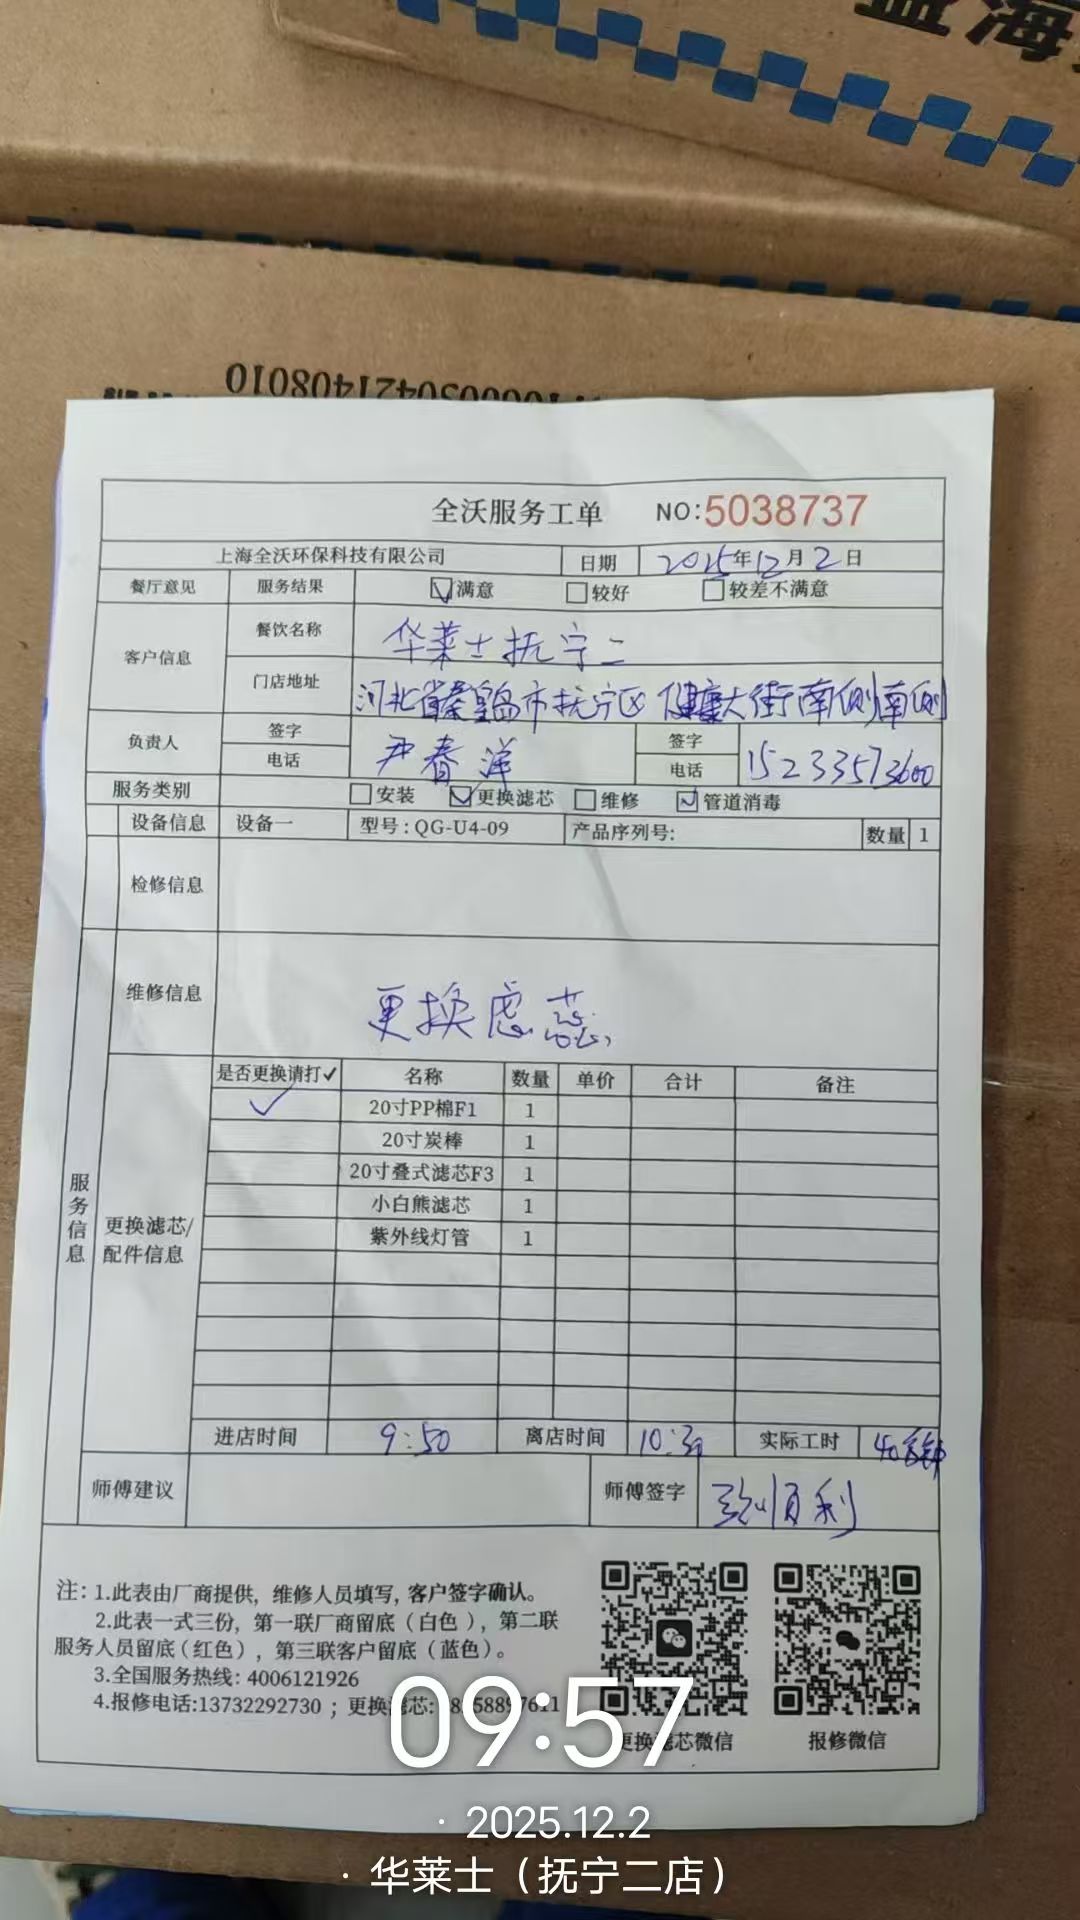 蓝海
010804121400000
全沃服务工单 NO:5038737
上海全沃环保科技有限公司 日期 2025年12月2日
餐厅意见 服务结果 ☑满意 □较好 □较差不满意
客户信息 餐饮名称 华莱士抚宁二
门店地址 河北省秦皇岛市抚宁区健康大街南侧南侧
负责人 签字 电话 尹春洋 签字 电话 15233573600
服务类别 □安装 ☑更换滤芯 □维修 ☑管道消毒
设备信息 设备一 型号:QG-U4-09 产品序列号: 数量 1
检修信息
维修信息 更换虑蕊
服务信息
更换滤芯/配件信息
是否更换请打✓ 名称 数量 单价 合计 备注
✓ 20寸PP棉F1 1
20寸炭棒 1
20寸叠式滤芯F3 1
小白熊滤芯 1
紫外线灯管 1
进店时间 9:50 离店时间 10:30 实际工时 40分钟
师傅建议 师傅签字 顺利
注: 1.此表由厂商提供, 维修人员填写, 客户签字确认。
2.此表一式三份, 第一联厂商留底（白色）, 第二联
服务人员留底(红色), 第三联客户留底（蓝色）。
3.全国服务热线: 4006121926
4.报修电话:13732292730 ; 更换滤芯:
更换滤芯微信 报修微信
09:57
· 2025.12.2
· 华莱士（抚宁二店）